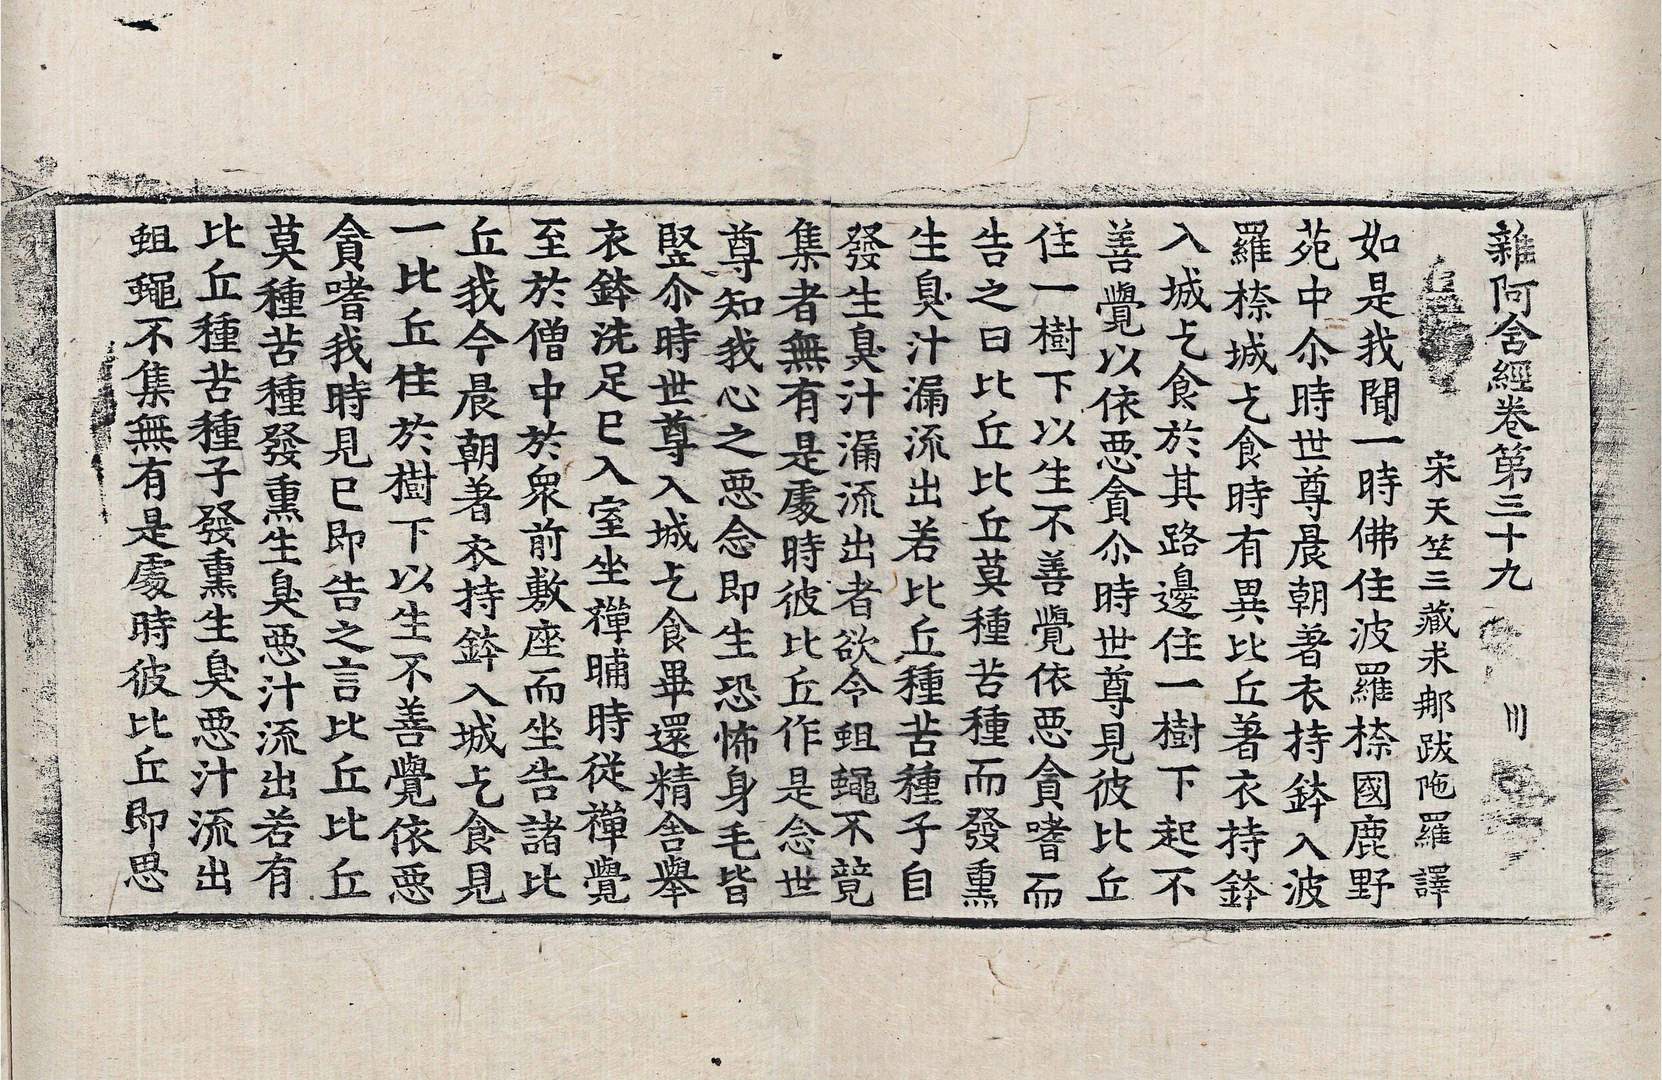 雜阿含經卷第三十九　川
宋天竺三藏求那跋陁羅譯
如是我聞一時佛住波羅㮈國鹿野
苑中尒時世尊晨朝著衣持鉢入波
羅㮈城乞食時有異比丘著衣持鉢
入城乞食於其路邊住一樹下起不
善覺以依惡貪尒時世尊見彼比丘
住一樹下以生不善覺依惡貪嗜而
告之曰比丘比丘莫種苦種而發熏
生臭汁漏流出若比丘種苦種子自
發生臭汁漏流出者欲令蛆蠅不競
集者無有是處時彼比丘作是念世
尊知我心之惡念即生恐怖身毛皆
竪尒時世尊入城乞食畢還精舍舉
衣鉢洗足已入室坐禪晡時從禪覺
至於僧中於衆前敷座而坐告諸比
丘我今晨朝著衣持鉢入城乞食見
一比丘住於樹下以生不善覺依惡
貪嗜我時見已即告之言比丘比丘
莫種苦種發熏生臭惡汁流出若有
比丘種苦種子發熏生臭惡汁流出
蛆蠅不集無有是處時彼比丘即思